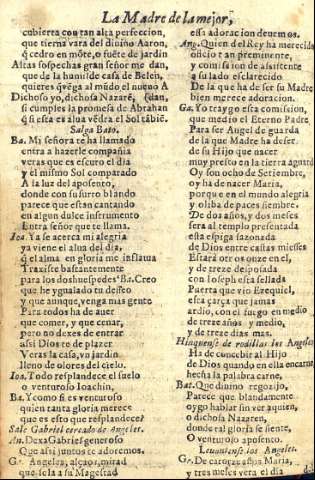 La Madre de la mejor,
cubierta con tan alta perfeccion,
que tierna vara del divino Aaron,
q̃ cedro en mõte, o fuẽte de jardin
Altas sospechas gran señor me dan,
que de la humilde casa de Belen,
quieres q̃ vẽga al mũdo el nuevo A
Dichoso yo, dichosa Nazarẽ, (dan,
si cumples la promesa de Abrahan
q̃ si esta es alva vẽdra el Sol tãbiẽ.
Salga Bato.
Ba. Mi señora te ha llamado
entra a hazerle compañia
veras que es escuro el dia
y el mismo Sol comparado
A la luz del aposento,
donde con susurro blando
parece que estan cantando
en algun dulce instrumento
Entra señor que te llama.
Ioa. Ya se acerca mi alegria
ya viene el alva del dia,
q̃ el alma en gloria me inflama
Traxiste bastantemente
para los doshuespedes? Ba. Creo
que he ygualado tu desseo
y que aunque venga mas gente
Para todos ha de auer
que comer, y que cenar,
pero no dexes de entrar
assi Dios te dè plazer
Veras la casa, vn jardin
lleno de olores del cielo.
Ioa. Todo resplandece el suelo
o venturoso Ioachin,
Ba. Y como si es venturoso
quien tanta gloria merece
que es esso que resplandece?
Sale Gabriel cercado de Angeles.
An. Dexa Gabriel generoso
Que assi juntos te adoremos.
G. Angeles, alcayos, mirad
que se la a su Magestad
essa adoracion deuemos.
Ang. Quien del Rey ha merecido
oficio tan preminente,
y comission de assistente
a su lado esclarecido
De la que ha de ser su Madre
bien merece adoracion.
Ga. Yo traygo esta comission,
que medio el Eterno Padre,
Para ser Angel de guarda
de la que Madre ha de ser
de su Hijo que nacer
muy presto en la tierra aguarda
Oy son ocho de Setiembre,
oy ha de nacer Maria,
porque en el mundo alegria
y oliba de paces siembre.
De dos años, y dos meses
serà al templo presentada
esta espiga sazonada
de Dios entre castas miesses
Estarà otros onze en el,
y de treze desposada
con Ioseph esta sellada
Puerta que vio Ezequiel,
esta çarça que jamas
ardio, con el fuego en medio
de treze años y medio,
y de treze dias mas.
Hinquense de rodillas los Angeles
Ha de concebir al Hijo
de Dios quando en ella encarne,
hecha la palabra carne,
Bat. Que divino regozijo,
Parece que blandamente
oygo hablar sin ver aquien,
o dichosa Nazaren,
donde tal gloria se siente,
O venturoso aposento.
Leuantense los Angeles.
Gr. De catorze años Maria,
y tres meses vera el dia